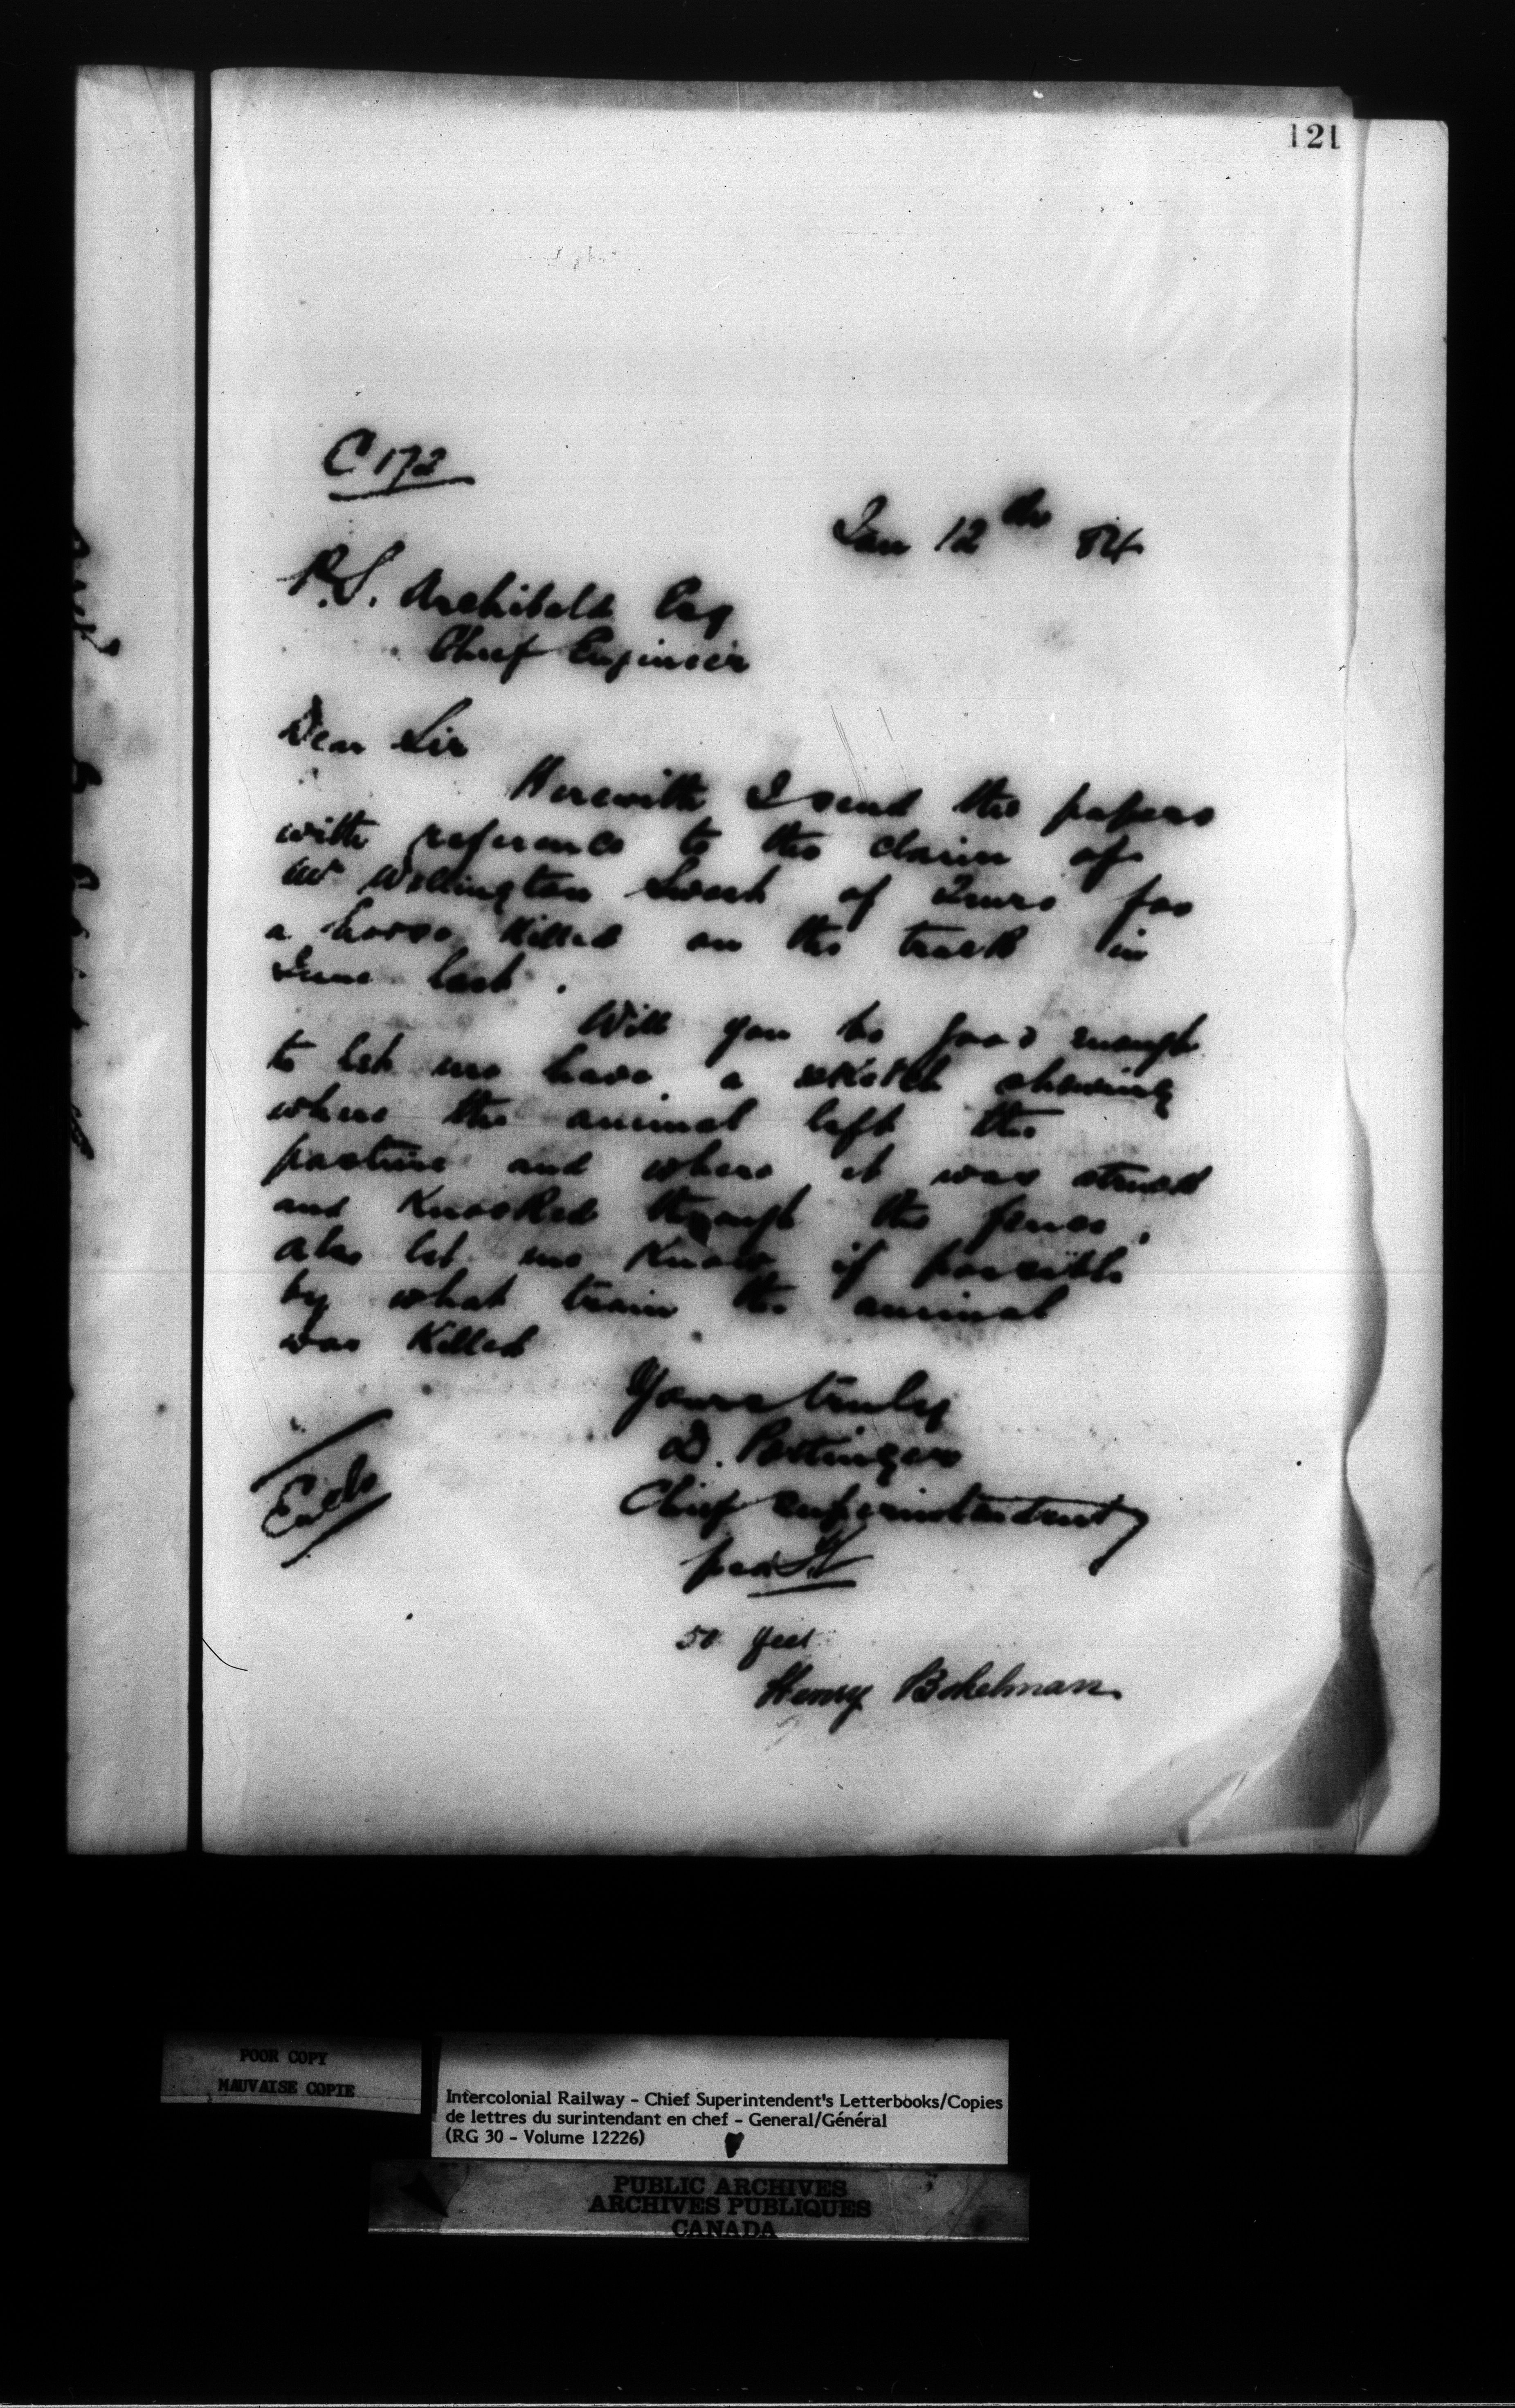 121
C 172
Jan 12th 84
P.S. Archibald Esq
Chief Engineer
Dear Sir
Herewith I send the papers
with reference to the claim of
Mr Wellington of Truro for
a horse killed on the track in
June last.
Will you be good enough
to let me have a sketch showing
where the animal left the
pasture and where it was struck
and knocked through the fence,
also let me know if possible
by what train the animal
was killed
Yours truly
D. Pottinger
Chief Superintendent
per
Encls
50 feet
Henry Bokelman
POOR COPY
MAUVAISE COPIE
Intercolonial Railway - Chief Superintendent's Letterbooks/Copies
de lettres du surintendant en chef - General/Général
(RG 30 - Volume 12226)
PUBLIC ARCHIVES
ARCHIVES PUBLIQUES
CANADA